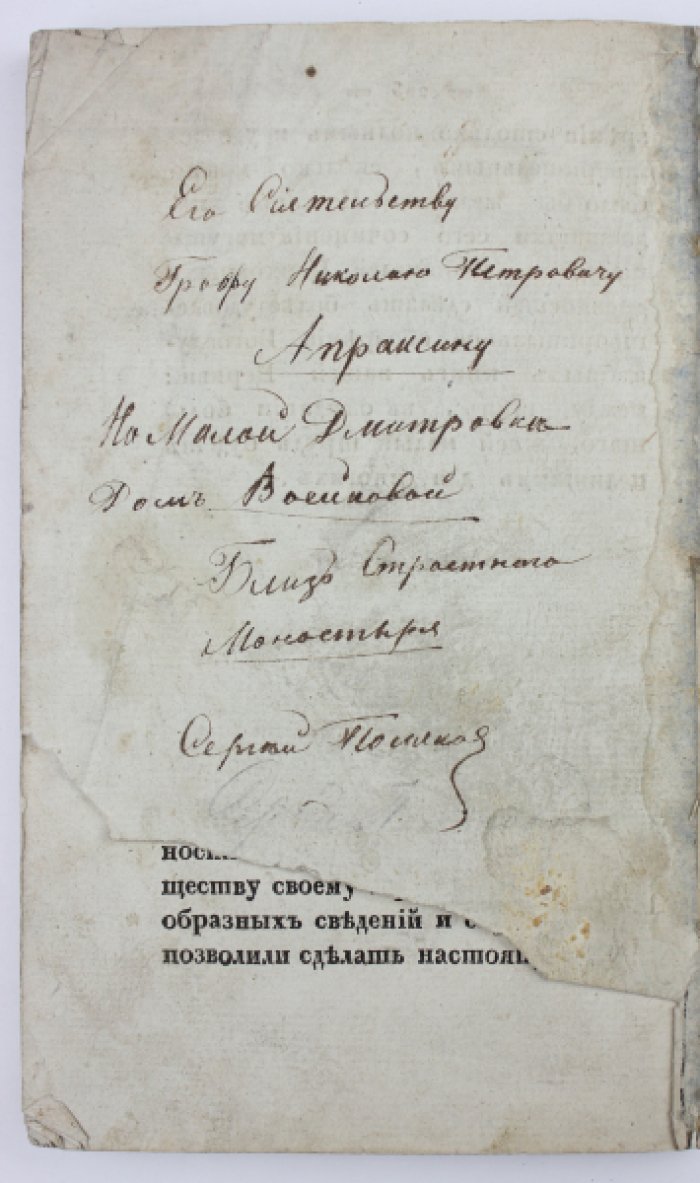 Его Сіятельству
Графу Николаю Петровичу
Апраксину
На Малой Дмитровке
Домъ Воейковой
Близь Страстнаго
Монастыря
Сергей Поляков
ществу своему
образныхъ свѣденій и
позволили сдѣлать